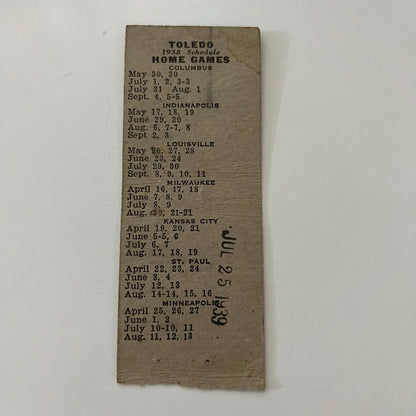 TOLEDO
1938 Schedule
HOME GAMES
COLUMBUS
May 30, 30
July 1, 2, 3-3
July 31 Aug. 1
Sept. 4, 5-5
INDIANAPOLIS
May 17, 18, 19
June 29, 30
Aug. 6, 7-7, 8
Sept 2, 3
LOUISVILLE
May 26, 27, 28
June 23, 24
July 29, 30
Sept. 8, 9, 10, 11
MILWAUKEE
April 16, 17, 18
June 7, 8, 9
July 8, 9
Aug. 20, 21-21
KANSAS CITY
April 19, 20, 21
June 5-5, 6
July 6, 7
Aug. 17, 18, 19
ST. PAUL
April 22, 23, 24
June 3, 4
July 12, 13
Aug. 14-14, 15, 16
MINNEAPOLIS
April 25, 26, 27
June 1, 2
July 10-10, 11
Aug. 11, 12, 13
JUL 25 1939